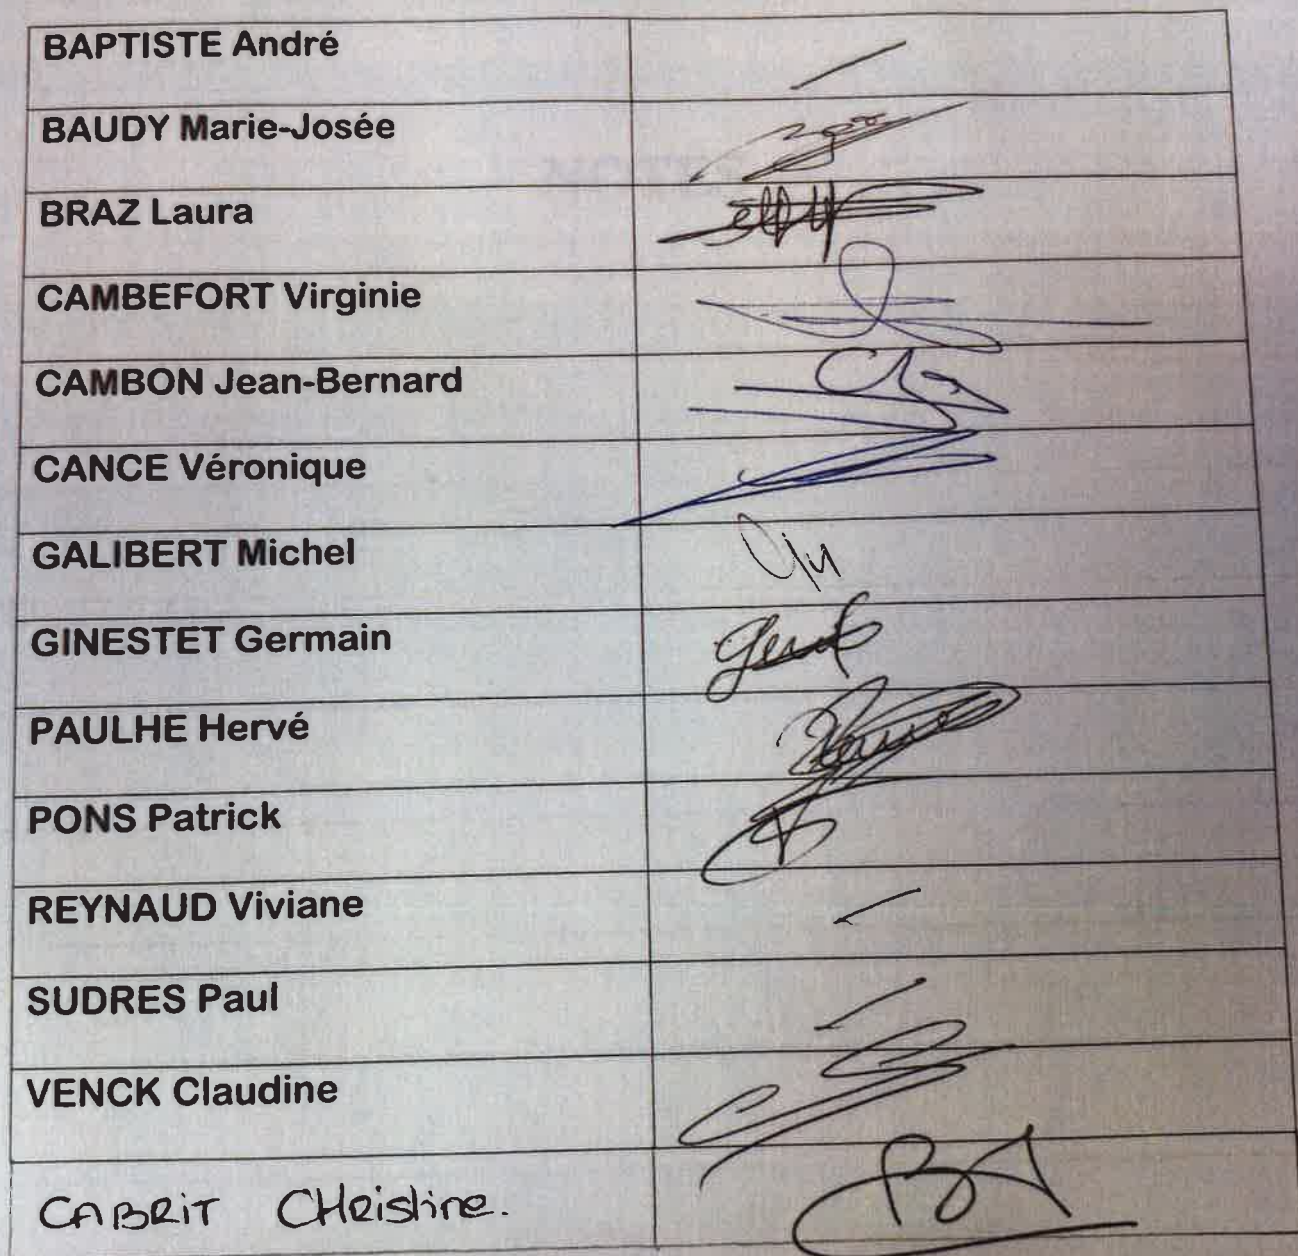 BAPTISTE André
BAUDY Marie-Josée
BRAZ Laura
CAMBEFORT Virginie
CAMBON Jean-Bernard
CANCE Véronique
GALIBERT Michel
GINESTET Germain
PAULHE Hervé
PONS Patrick
REYNAUD Viviane
SUDRES Paul
VENCK Claudine
CABRIT CHRistine.